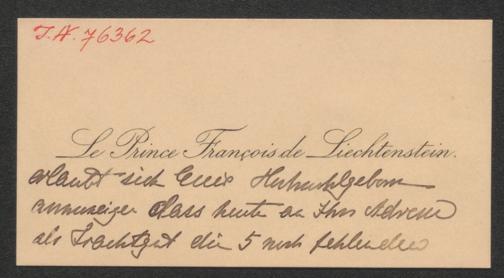 I.N. 76362
Le Prince François de Liechtenstein.
erlaubt sich Euer Hochwohlgeborn
anzuzeigen dass heute an Ihre Adresse
als Frachtgut die 5 noch fehlenden